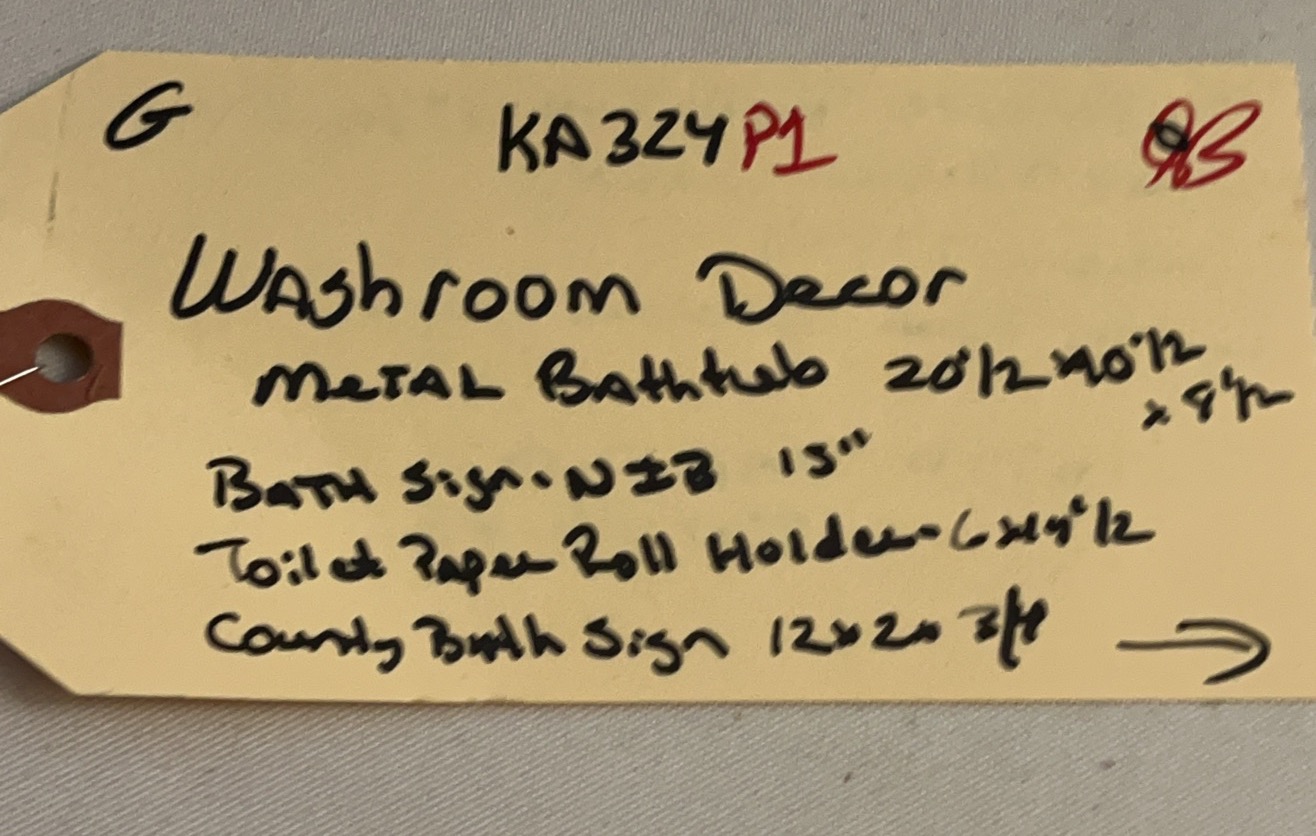 G KA324P1
Washroom Decor
METAL Bathtub 20 1/2 x 40 1/2
x 8 1/2
BATH Sign. NIB 15"
Toilet Paper Roll Holder - 6 x 1/2
County Bath Sign 12 x 2 x 3/4 →